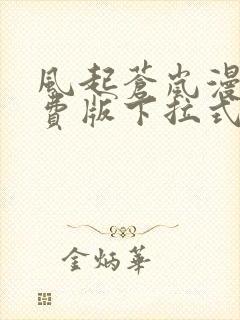 風起蒼嵐漫
費版下拉式
金炳華